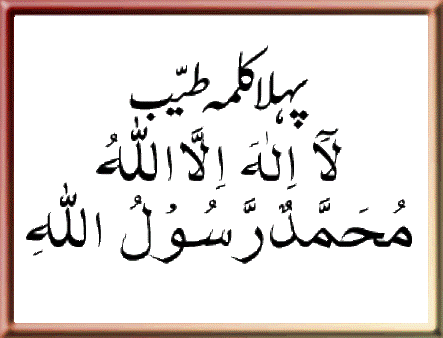 پہلا کلمہ طیّب
لَآ اِلٰهَ اِلَّا اللّٰهُ
مُحَمَّدٌ رَّسُوْلُ اللّٰهِ